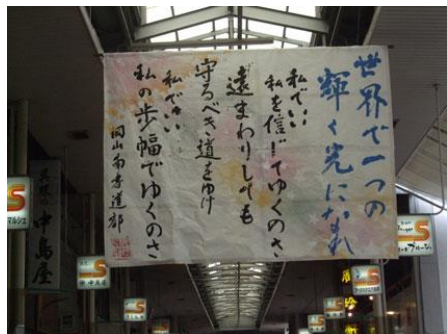 世界で一つの
輝く光になれ
私でいい
私を信じてゆくのさ
遠まわりしても
守るべき道をゆけ
私でいい
私の歩幅でゆくのさ
岡山南書道部
呉服の中島屋
マルシェ
中島屋